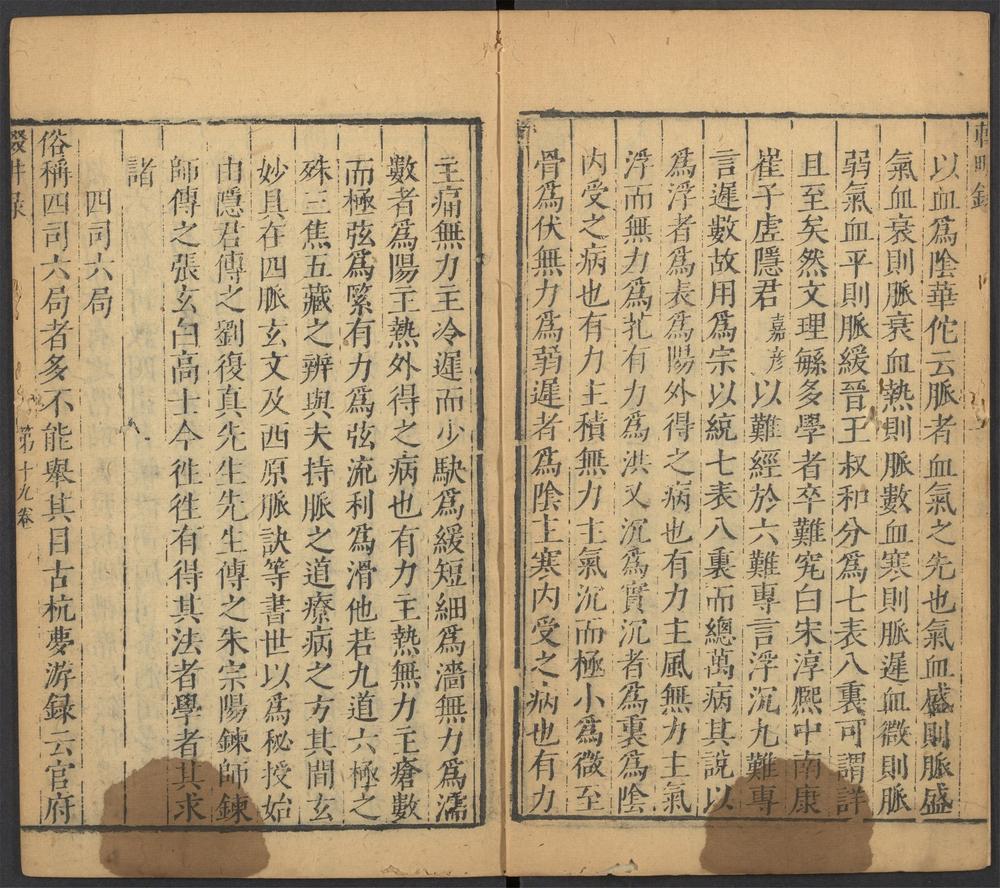 以血爲陰華佗云脈者血氣之先也氣血盛則脈盛
氣血衰則脈衰血熱則脈數血寒則脈遲血微則脈
弱氣血平則脈緩晉王叔和分爲七表八裏可謂詳
且至矣然文理繇多學者卒難究白宋淳熙中南康
崔子虛隱君嘉彥以難經於六難專言浮沉九難專
言遲數故用爲宗以統七表八裏而總萬病其說以
爲浮者爲表爲陽外得之病也有力主風無力主氣
浮而無力爲芤有力爲洪又沉爲實沉者爲裏爲陰
内受之病也有力主積無力主氣沉而極小爲微至
骨爲伏無力爲弱遲者爲陰主寒内受之病也有力
主痛無力主冷遲而少駃爲緩短細爲濇無力爲濡
數者爲陽主熱外得之病也有力主熱無力主瘡數
而極弦爲緊有力爲弦流利爲滑他若九道六極之
殊三焦五藏之辨與夫持脈之道療病之方其間玄
妙具在四脈玄文及西原脈訣等書世以爲秘授始
由隱君傳之劉復真先生先生傳之朱宗陽鍊師鍊
師傳之張玄白高士今徃徃有得其法者學者其求
諸
四司六局
俗稱四司六局者多不能舉其目古杭夢游録云官府
第十九卷